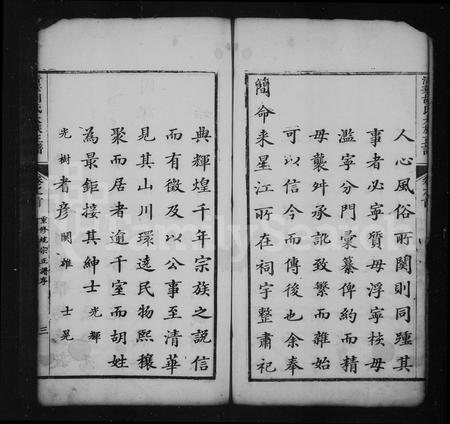 人心風俗所関則同踵其
事者必寧質毋浮寧核毋
濫寧分門彙纂俾約而精
毋襲舛承訛致繁而雜始
可以信今而傳後也余奉
簡命来星江所在祠宇整肅祀
典輝煌千年宗族之説信
而有徴及以公事至清華
見其山川環遶民物熙穰
聚而居者逾千室而胡姓
為最鉅接其紳士光輝
光樹耆彦関雄士晃
重修統宗正譜序
三
FamilySearch